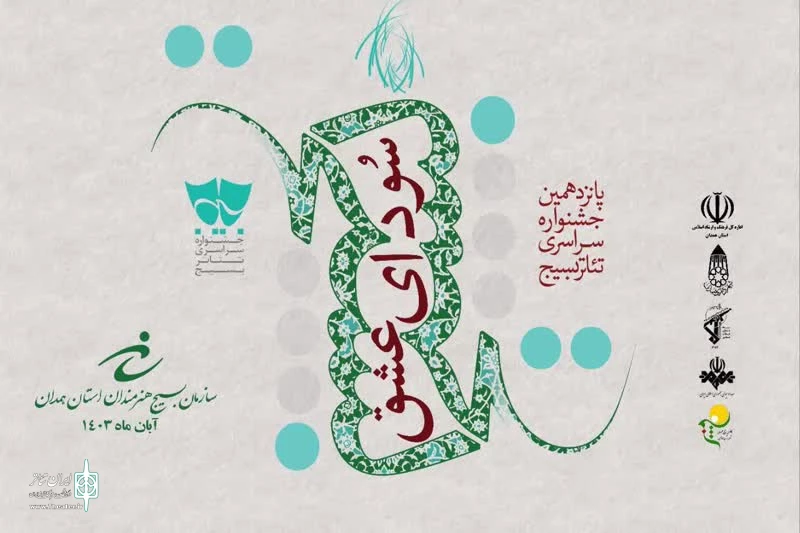 سُودای عشق
پانزدهمین
جشنواره
سراسری
تئاتر بسیج
جشنواره
سراسری
تئاتر
بسیج
سازمان بسیج هنرمندان استان همدان
آبان ماه ۱۴۰۳
اداره کل فرهنگ و ارشاد اسلامی
استان همدان
ایران تئاتر